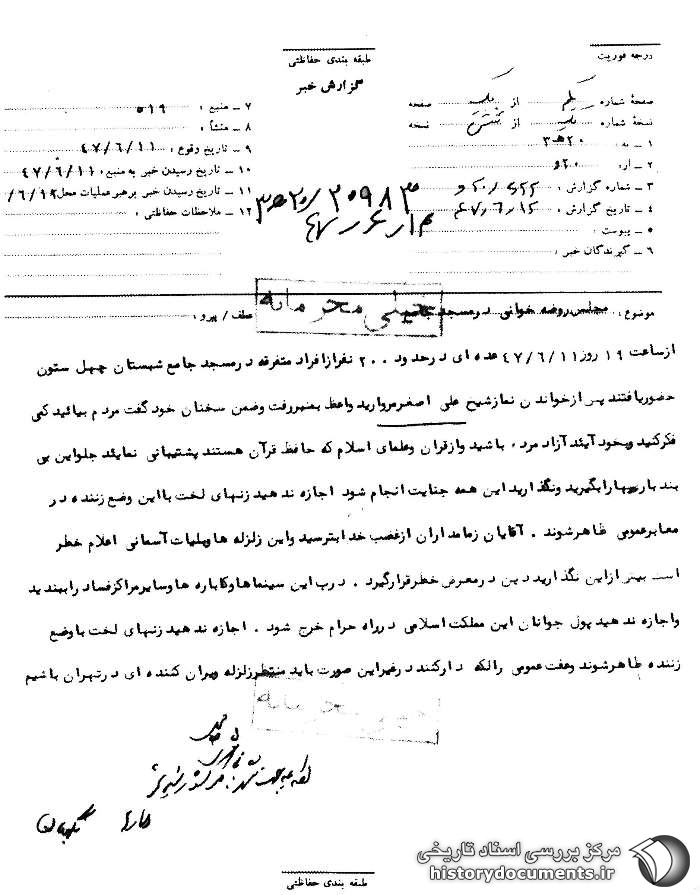 درجه فوریت
طبقه بندی حفاظتی
گزارش خبر
صفحهٔ شماره یکم از یک صفحه
نسخهٔ شماره یک از شش نسخه
۱ ـ به : ۲۰ هـ ۳
۲ ـ از : ۲۰ و
۳ ـ شماره گزارش :
۴ ـ تاریخ گزارش : ۴۷/۶/۱۵
۵ ـ پیوست :
۶ ـ گیرندگان خبر :
۷ ـ منبع : ۵۱۹
۸ ـ منشأ :
۹ ـ تاریخ وقوع : ۴۷/۶/۱۱
۱۰ ـ تاریخ رسیدن خبر به منبع : ۴۷/۶/۱۱
۱۱ ـ تاریخ رسیدن خبر برهبر عملیات محل /۶/۱۲
۱۲ ـ ملاحظات حفاظتی :
خیلی محرمانه
موضوع : مجلس روضه خوانی در مسجد جامع
عطف / پیرو :
از ساعت ۱۹ روز ۴۷/۶/۱۱ عده ای در حدود ۲۰۰ نفر از افراد متفرقه در مسجد جامع شبستان چهل ستون
حضور یافتند پس از خواندن نماز شیخ علی اصغر مروارید واعظ بمنبر رفت و ضمن سخنان خود گفت مردم بیائید کمی
فکر کنید و بخود آئید آزاد مرد باشید و از قران و علمای اسلام که حافظ قرآن هستند پشتیبانی نمایئد جلو این بی
بند باریها را بگیرید و نگذارید این همه جنایت انجام شود اجازه ندهید زنهای لخت با این وضع زننده در
معابر عمومی ظاهر شوند . آقایان زمامداران از غضب خدا بترسید و این زلزله ها و بلیات آسمانی اعلام خطر
است بیش از این نگذارید دین در معرض خطر قرار گیرد . درب این سینماها و کاباره ها و سایر مراکز فساد را ببندید
و اجازه ندهید پول جوانان این مملکت اسلامی در راه حرام خرج شود . اجازه ندهید زنهای لخت با وضع
زننده ظاهر شوند و عفت عمومی را لکه دار کنند در غیر این صورت باید منتظر زلزله ویران کننده ای در تهران باشیم
طبقه بندی حفاظتی
مرکز بررسی اسناد تاریخی
historydocuments.ir